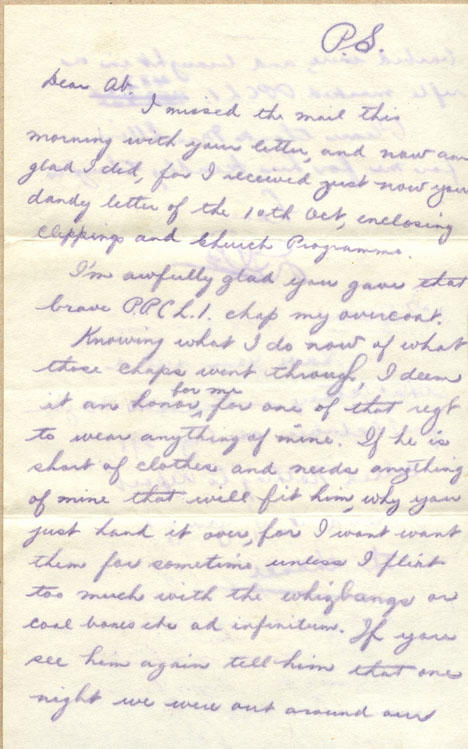 P.S.
Dear Ab.
I missed the mail this
morning with your letter, and now am
glad I did, for I received just now your
dandy letter of the 10th Oct, enclosing
clippings and Church Programme.
I'm awfully glad you gave that
brave P.P.C.L.I. chap my overcoat.
Knowing what I do now of what
those chaps went through, I deem
for me
it an honor, for one of that regt
to wear anything of mine. If he is
short of clothes and needs anything
of mine that will fit him, why you
just hand it over, for I wont want
them for sometime unless I flirt
too much with the whizbangs or
coal boxes etc ad infinitum. If you
see him again tell him that one
night we were out around our